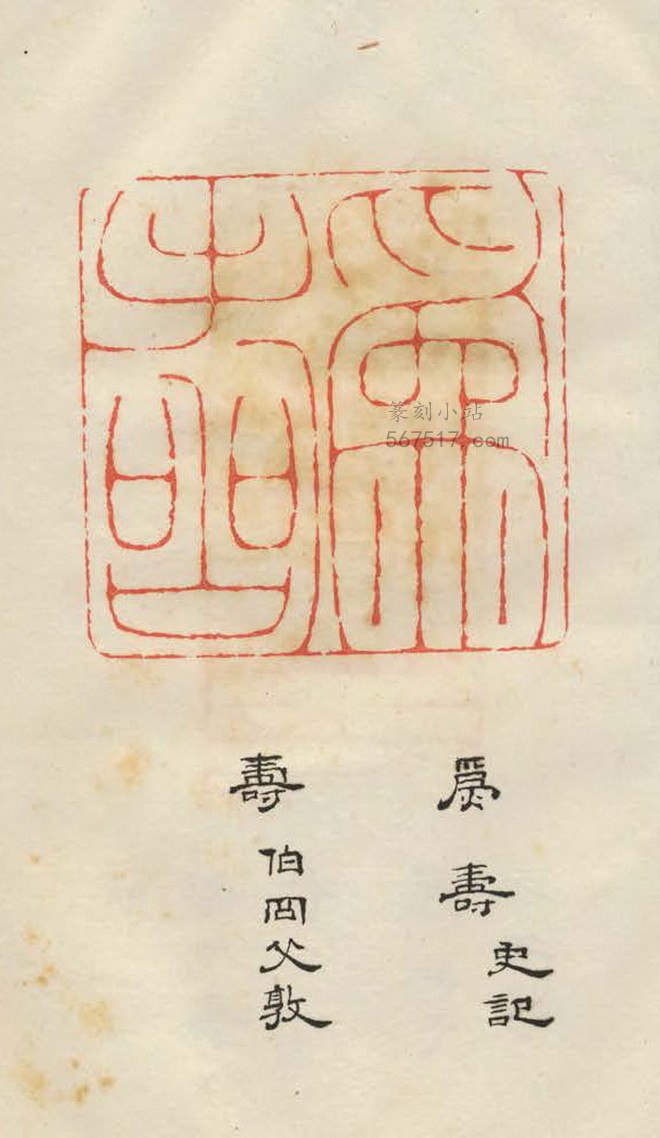 爲壽
篆刻小站
567517.com
爲壽 史記
壽 伯冏父敦